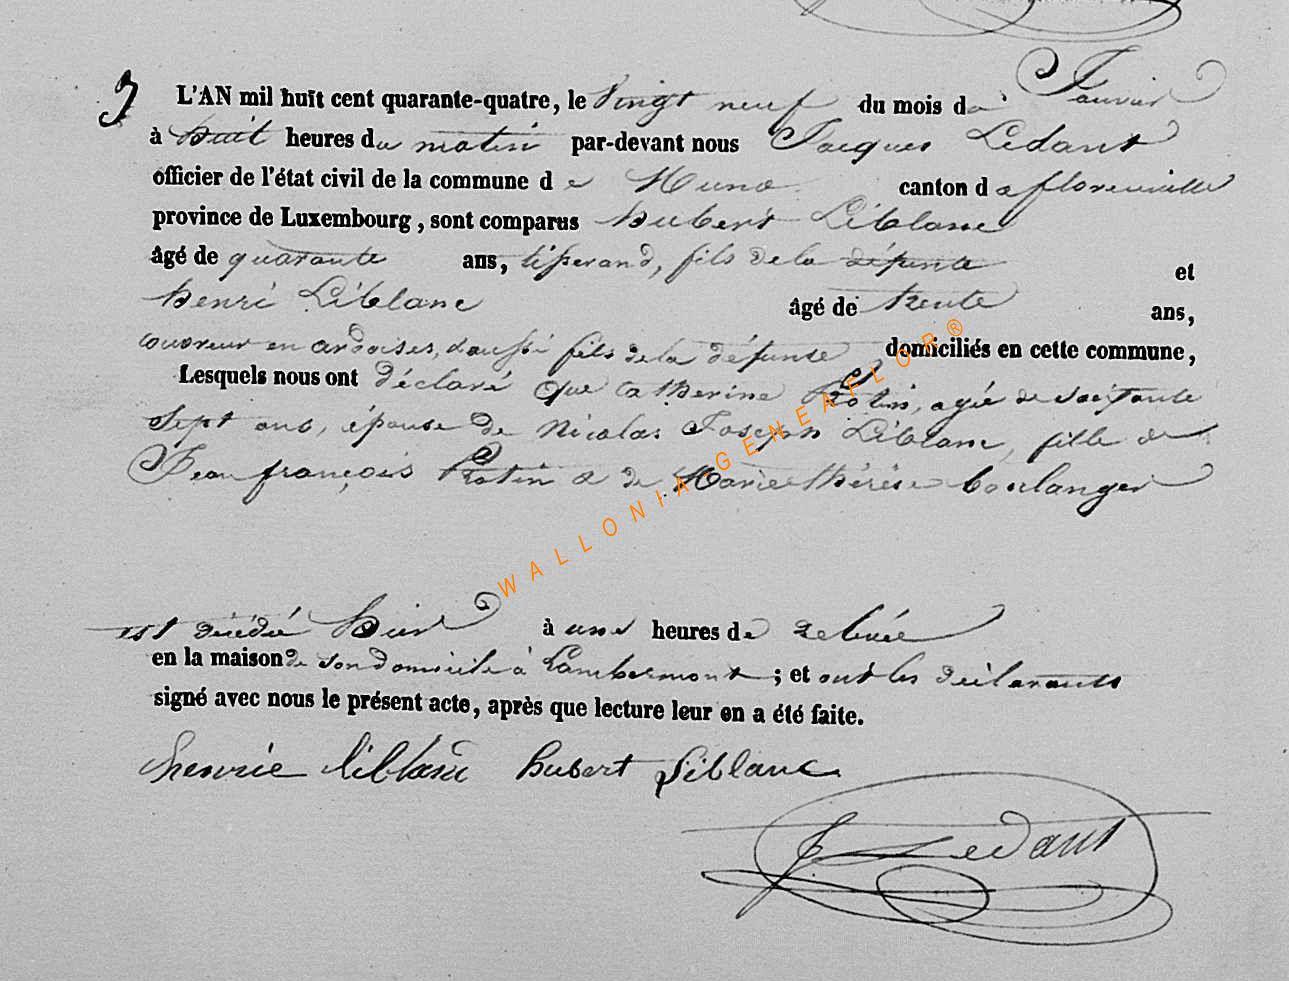 3 L'AN mil huit cent quarante-quatre, le Vingt neuf du mois de Janvier
à huit heures du matin par-devant nous Jacques Lédant
officier de l'état civil de la commune de Muno canton de florenville
province de Luxembourg, sont comparus hubert Liblanc
âgé de quarante ans, tisserand, fils de la défunte et
henri Liblanc âgé de trente ans,
couvreur en ardoises, aussi fils de la défunte domiciliés en cette commune,
Lesquels nous ont déclaré que catherine Rotin, agée de soixante
sept ans, épouse de Nicolas Joseph Liblanc, fille de
Jean françois Rotin & de Marie thérèse boulanger
est décédée hier à une heures de relevée
en la maison de son domicile à Lambermont ; et ont les déclarants
signé avec nous le présent acte, après que lecture leur en a été faite.
henrie liblanc hubert Liblanc
J Ledant
WALLONIA-GENEAFLOR®